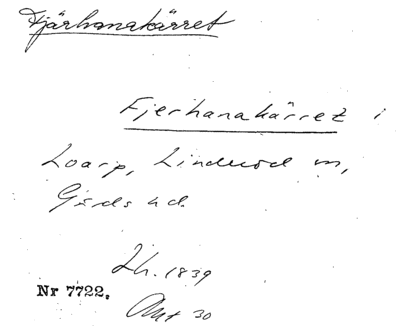 Fjärhanakärret
Fjerhanakärret i
Loarp, Linderöd sn,
Gärds hd.
Lh. 1839
Nr 7722.
Akt 30